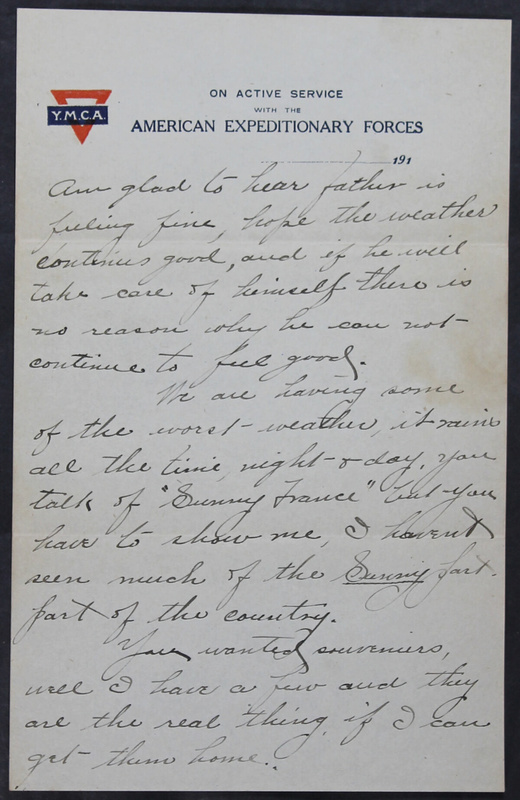 Y.M.C.A.
ON ACTIVE SERVICE
WITH THE
AMERICAN EXPEDITIONARY FORCES
191
Am glad to hear father is
feeling fine, hope the weather
continues good, and if he will
take care of himself there is
no reason why he can not
continue to feel good.
We are having some
of the worst weather, it rains
all the time, night & day, you
talk of "Sunny France" but you
have to show me, I havent
seen much of the Sunny part.
part of the country.
You wanted souveniers,
well I have a few and they
are the real thing, if I can
get them home.